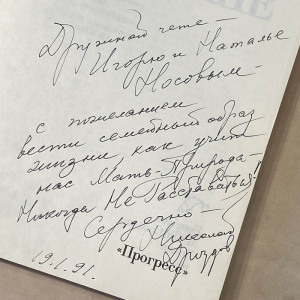 Дружной чете -
Игорю и Наталье
Носовым -
с пожеланием
вести семейный образ
жизни, как учит
нас Мать-Природа -
Никогда Не Расставаться!
Сердечно -
Николай
Дроздов
«Прогресс»
19.1.91.